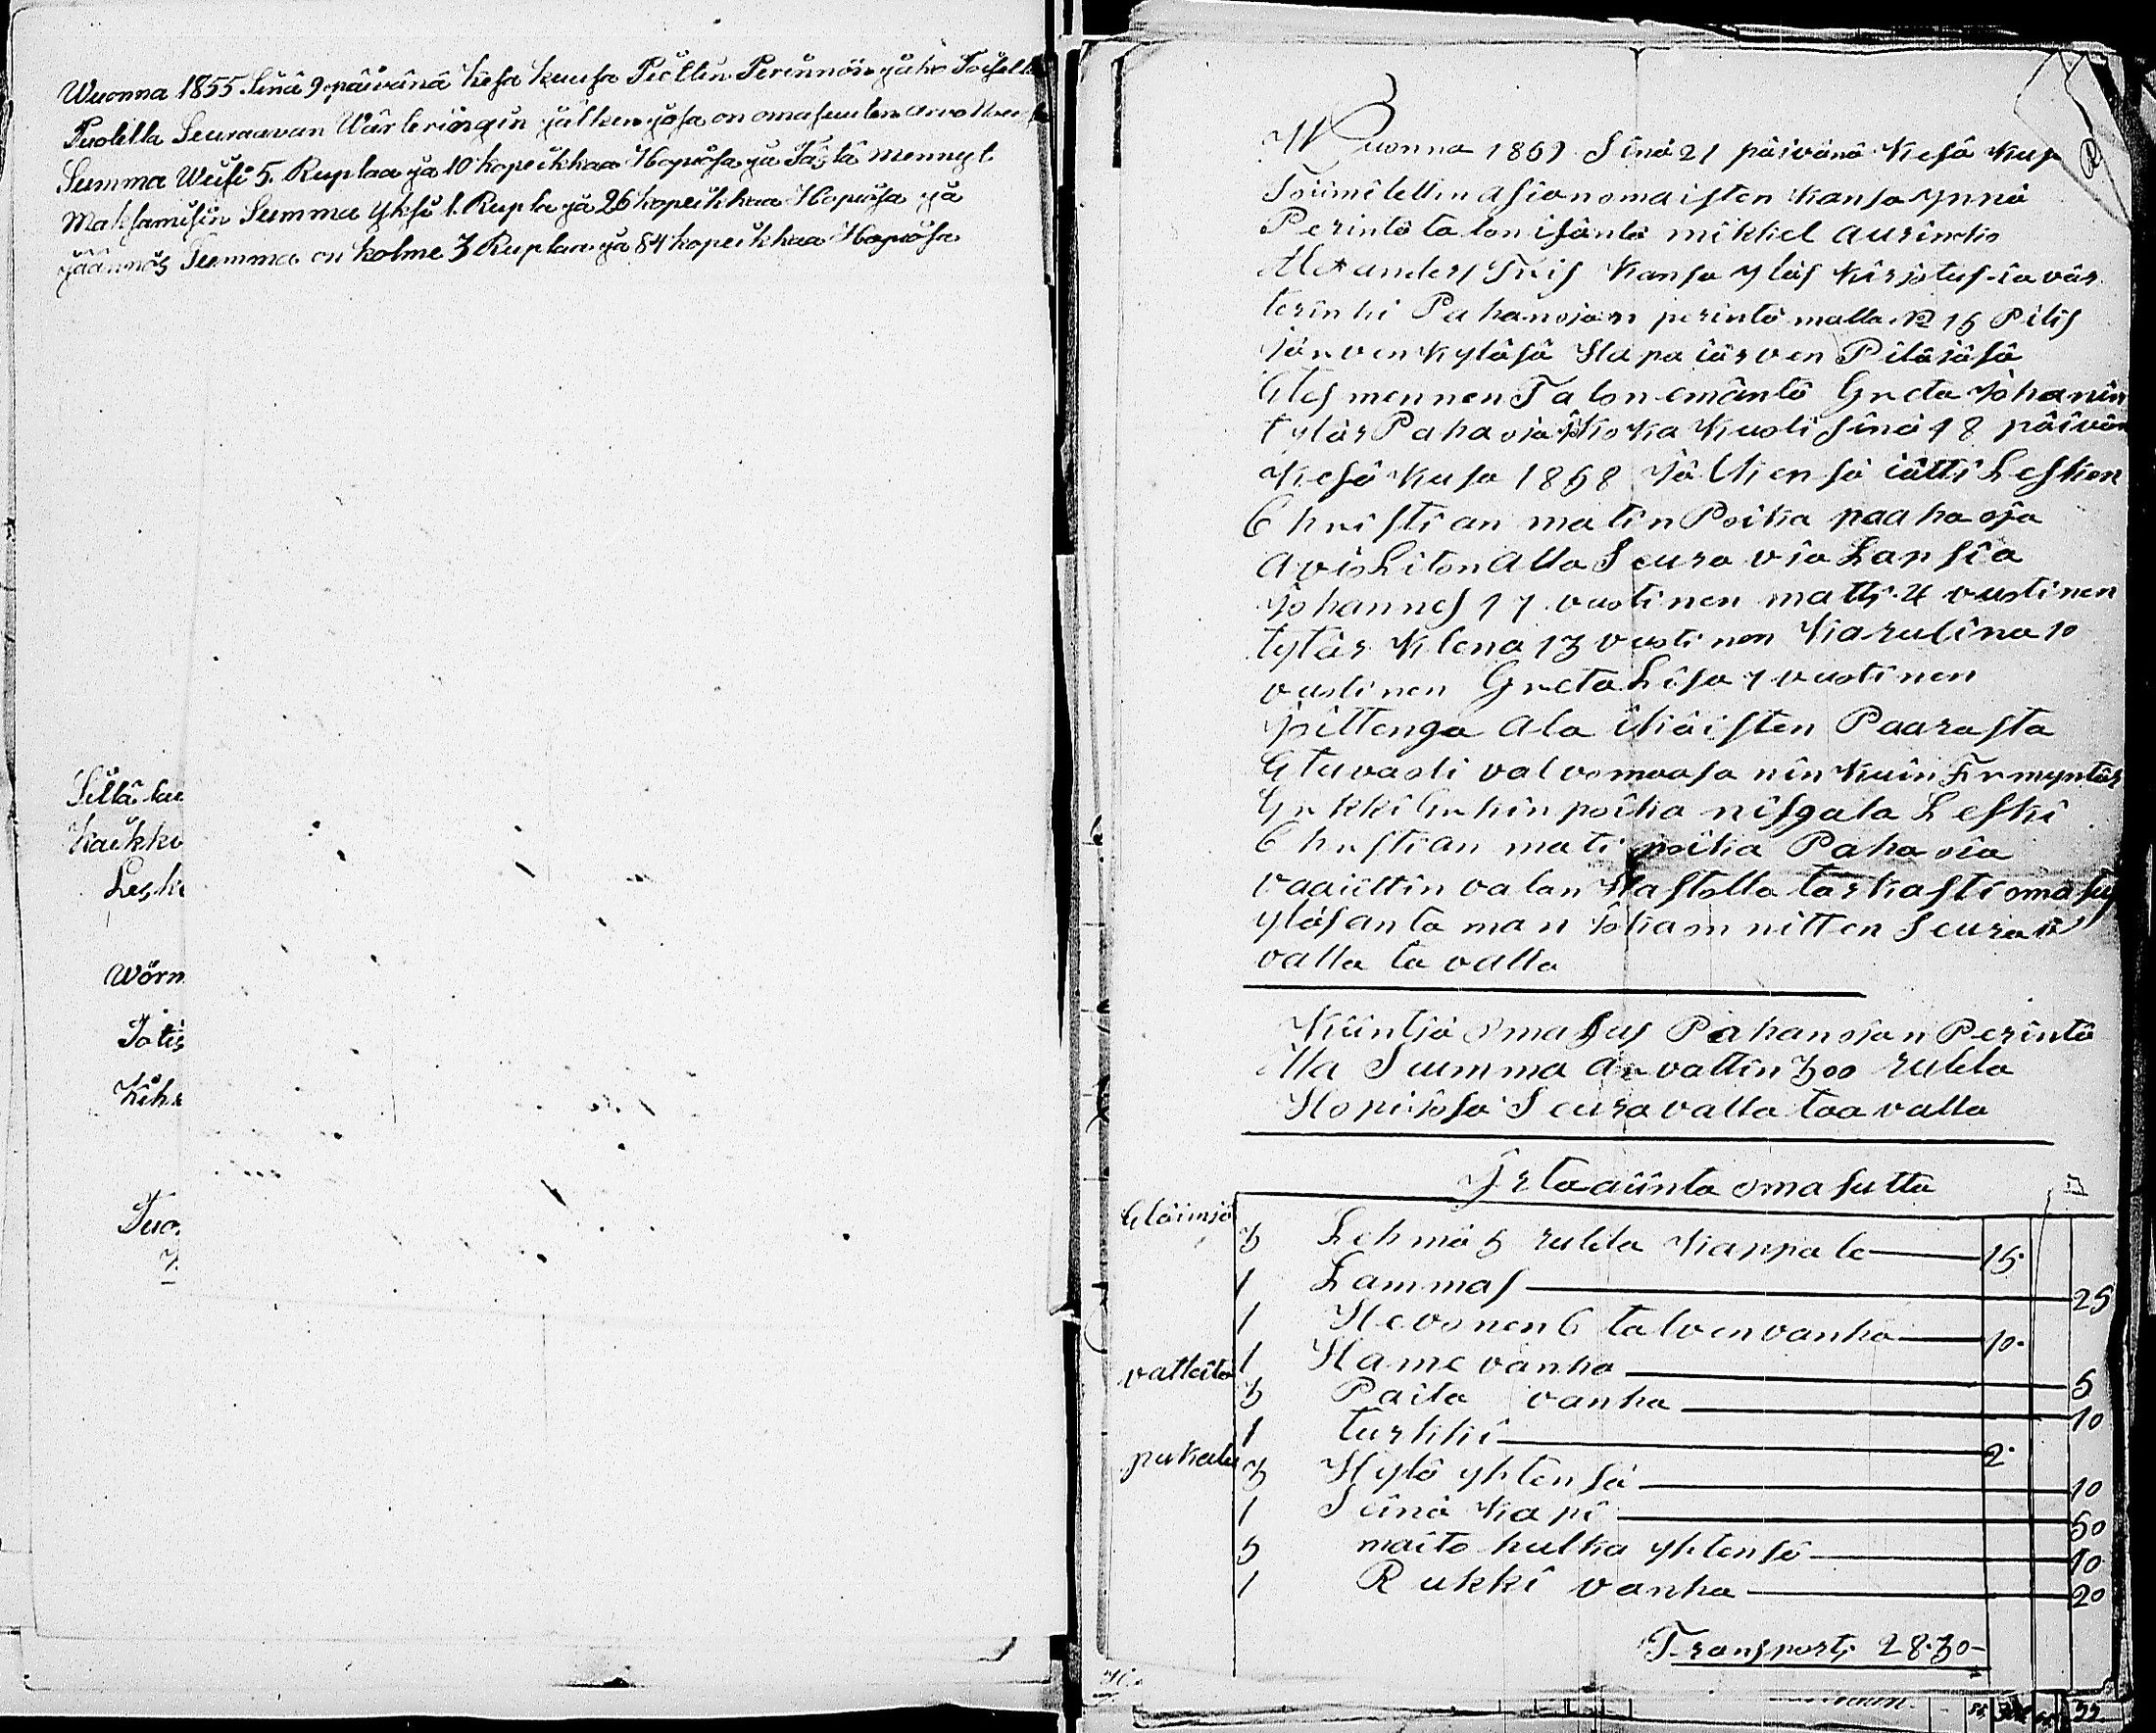 Wuonna 1855 Sinä 9 päivänä Kesä kuusa Piettin Perinnön jako Toisella
Puolella Seuraavan Wärleringin jälken josa on omasuuten arvo
Summa Wiisi 5. Ruplaa ja 10 kopeikkaa Hopiosa ja Tästä mennyt
Maksamisin Summa yksi 1. Rupla ja 26 kopeikkaa Hopiosa ja
jäännös Summa on kolme 3 Ruplaa ja 84 kopeikkaa Hopiosa
Kaikki
Wörm
Wuonna 1869 Sinä 21 päivänä Kesä Kus
Toimitettin asianomaisten Kansa ynnä
Perintö talon isäntä mikkel aurinkio
Alexander Kansa yläs Kirjotus ia vär
terinki Pahanojan perintö malla No 15 Pilis
järven Kyläsä Hapaiärven Pitäjäsä
Etes mennen Talon emäntä Greta Johanin
tytär Pahaoja Joka Kuoli Sinä 18 päivän
Kesä Kusa 1868 Jälkensä iätti Lesken
Christian matin Poika paahaoja
avioliton alla Seura via Lapsia
Johannes 17 vuotinen matti 4 vuotinen
tytär Klena 13 vuotinen Karulina 10
vuotinen Greta Lisa 7 vuotinen
joittenga ala ikäisten Paarasta
Etuvasti valvomaasa nin Kuin Formyntär
Erkki Erkin poika nisgala Leski
Christian mati poika Pahaoia
vaaiittin valan Hastolla tarkasti omasus
yläsantaman Jokam nitten Seuraa
valla tavalla
Kiintjä omasus Pahanojan Perintö
Ma Summa arvattin 300 rubla
Hopiosa Seuravalla taavalla
Irtaäinta omasutta
Eläimiä
3 Lehmä 5 rubla Kappale 15.
1 Lammas 25
1 Hevonen 6 talven vanha 10.
vatteita 1 Hame vanha 5
3 Paita vanha 10
1 turkki 2.
pukalu 3 Hylä yhtensä 10
1 Seinä Kapi 50
5 maito hulka yhtensä 10
1 Rukki vanha 20
Transport 28.30